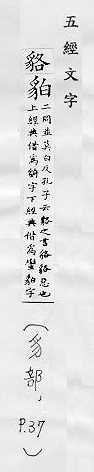 五經文字
貉貃
二同並莫白反孔子云貉之言貉貉惡也
上經典借為字下經典借為蠻貃字
(豸部, P.37)